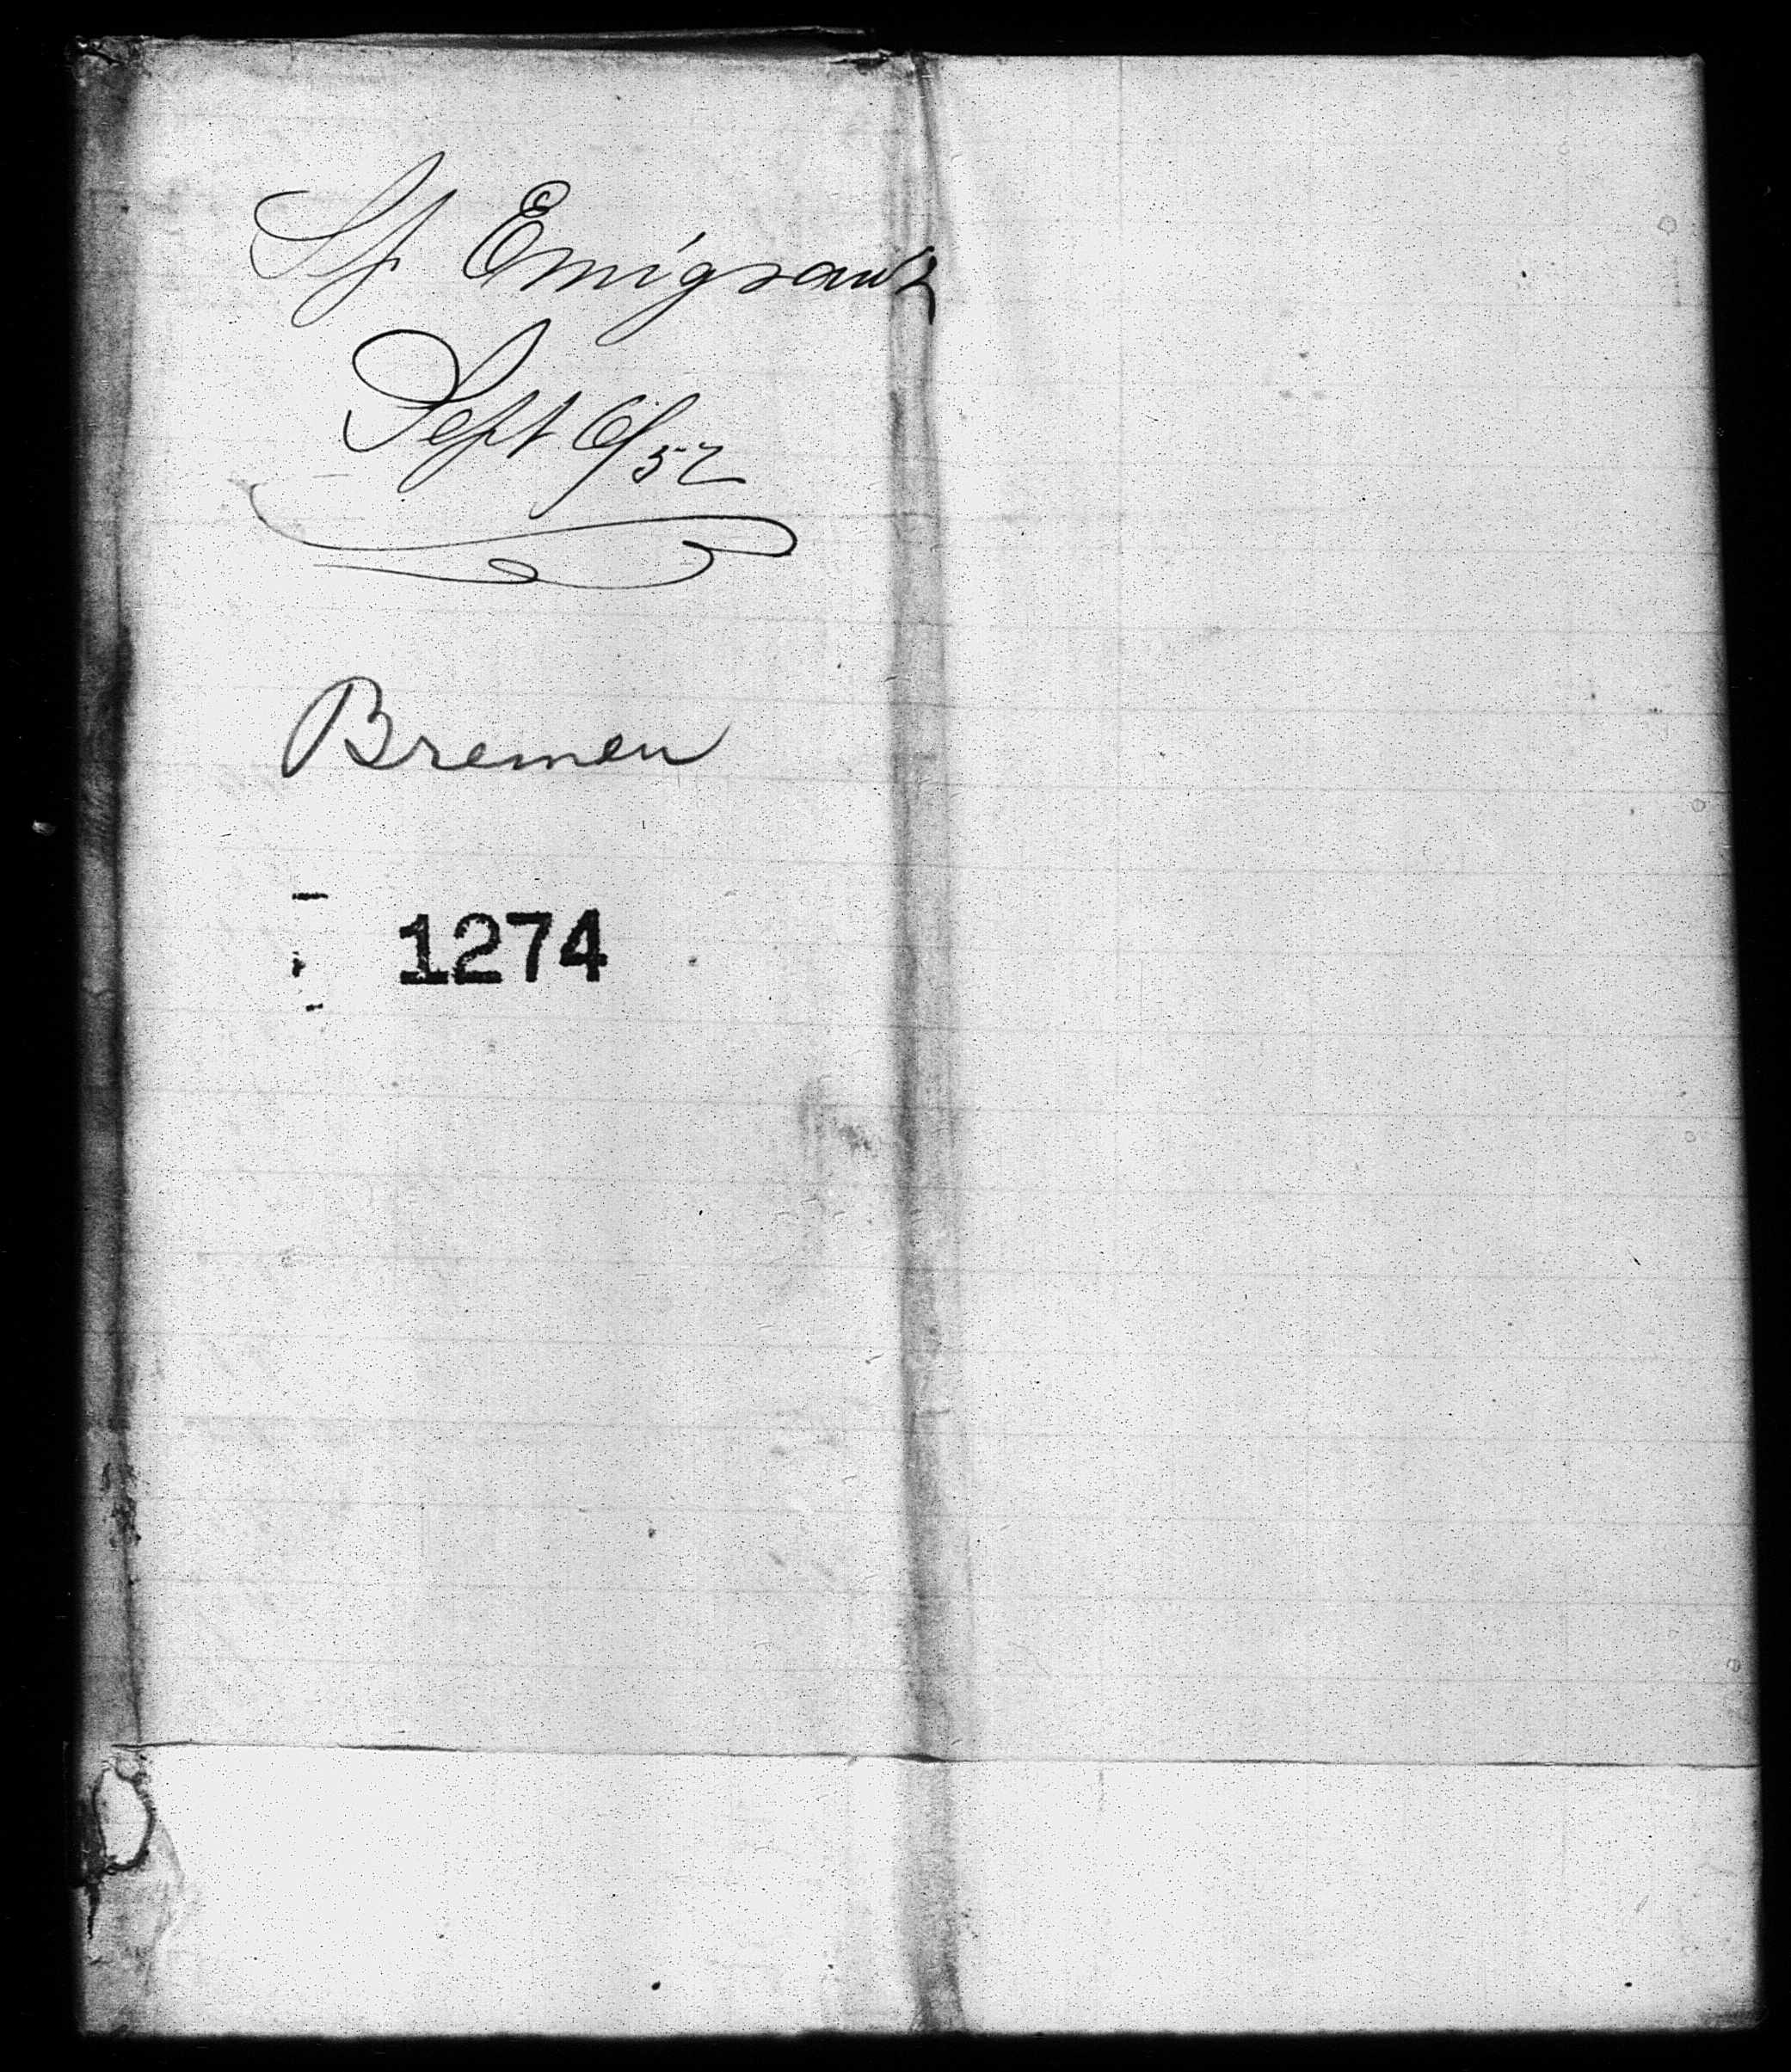 Sp Emigrant
Sept 6/52
Bremen
1274